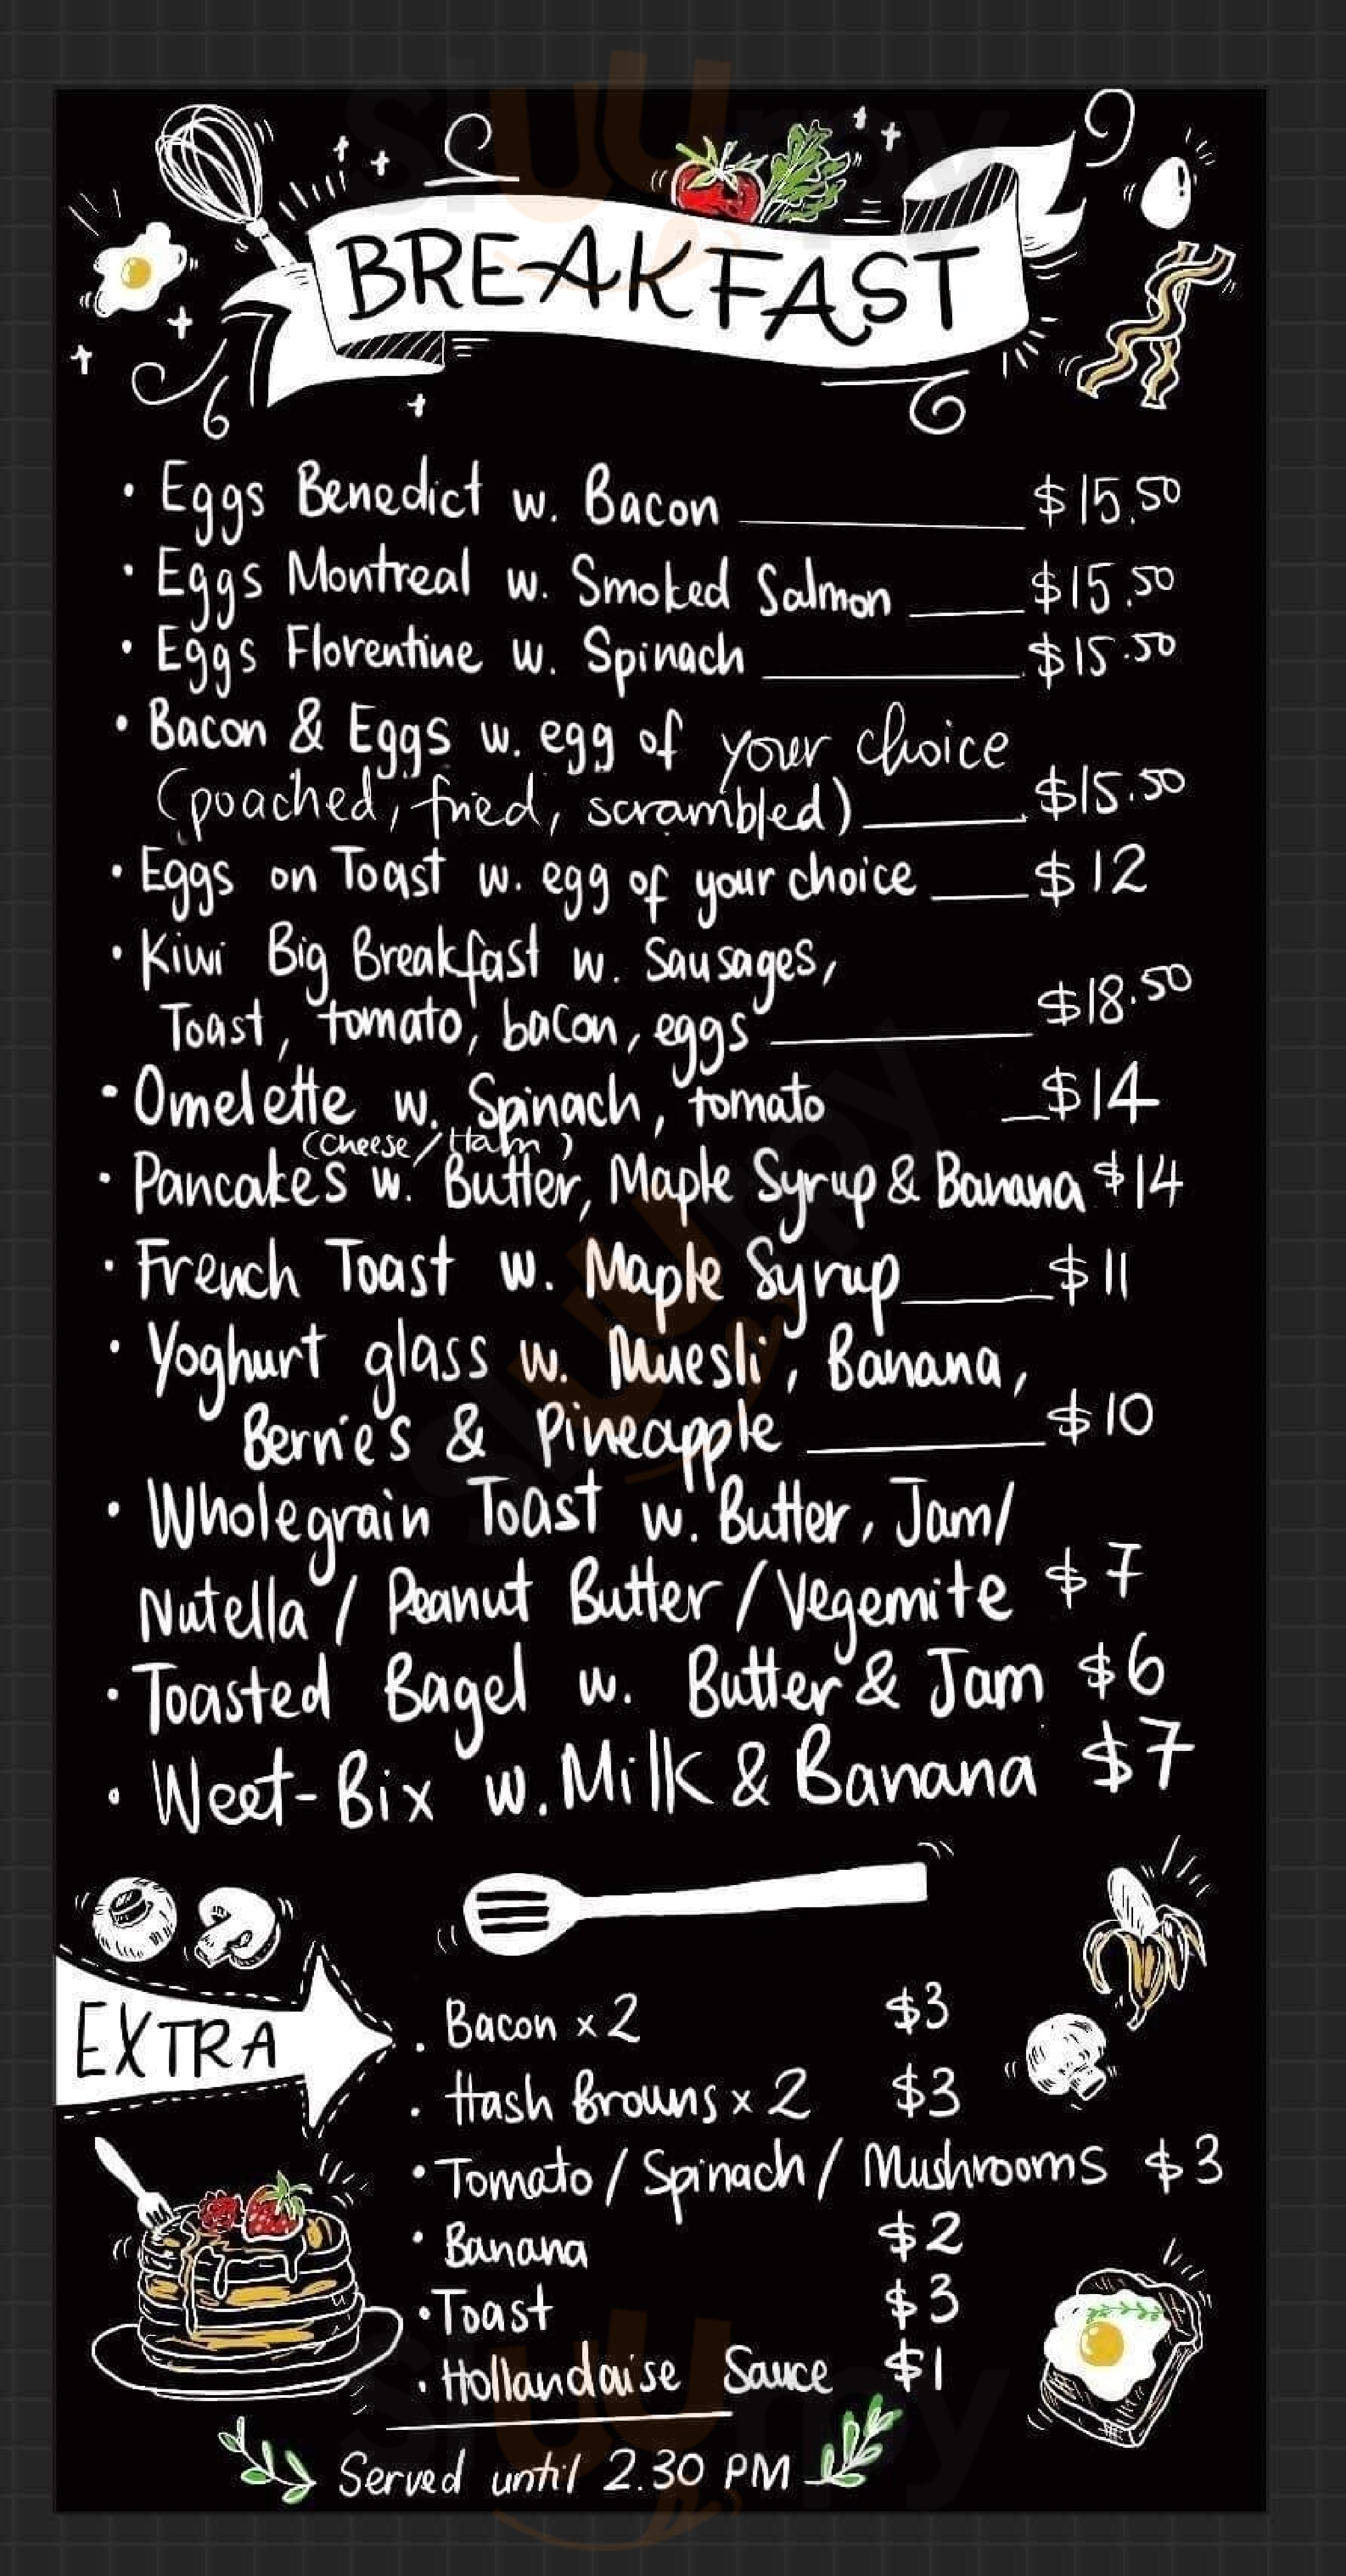 BREAKFAST
• Eggs Benedict w. Bacon $15.50
• Eggs Montreal w. Smoked Salmon $15.50
• Eggs Florentine w. Spinach $15.50
• Bacon & Eggs w. egg of your choice
(poached, fried, scrambled) $15.50
• Eggs on Toast w. egg of your choice $12
• Kiwi Big Breakfast w. Sausages,
Toast, tomato, bacon, eggs $18.50
• Omelette w. Spinach, tomato $14
(Cheese/Ham)
• Pancakes w. Butter, Maple Syrup & Banana $14
• French Toast w. Maple Syrup $11
• Yoghurt glass w. Muesli, Banana,
Berries & Pineapple $10
• Wholegrain Toast w. Butter, Jam/
Nutella / Peanut Butter / Vegemite $7
• Toasted Bagel w. Butter & Jam $6
• Weet-Bix w. Milk & Banana $7
EXTRA
• Bacon x 2 $3
• Hash Browns x 2 $3
• Tomato / Spinach / Mushrooms $3
• Banana $2
• Toast $3
• Hollandaise Sauce $1
Served until 2.30 PM
sluurpy
sluurpy
sluurpy